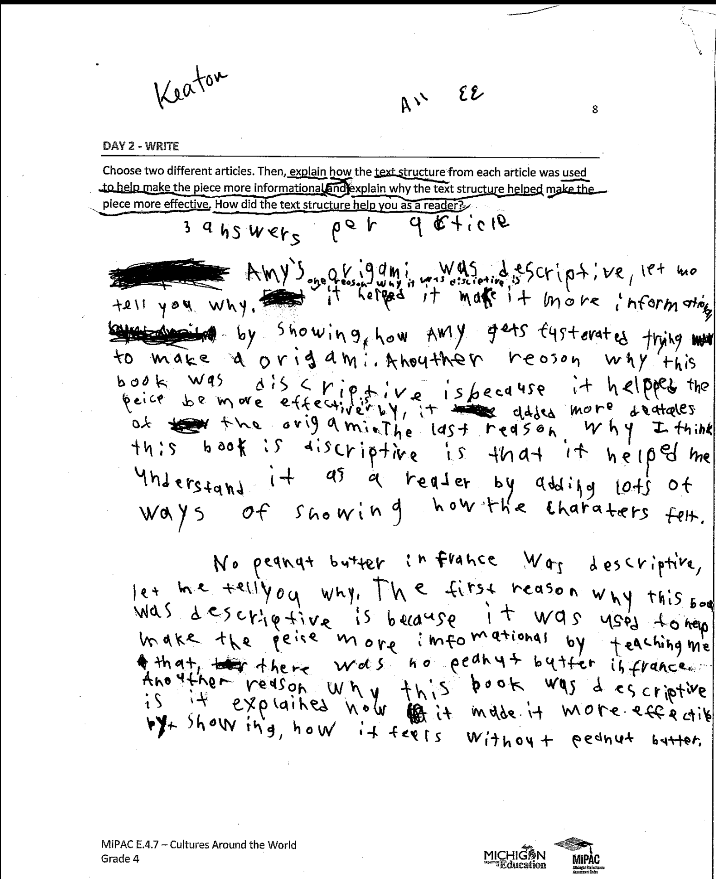 Keaton
All EE
8
DAY 2 - WRITE
Choose two different articles. Then, explain how the text structure from each article was used
to help make the piece more informational and explain why the text structure helped make the
piece more effective. How did the text structure help you as a reader?
3 answers per article
Amy's origami was descriptive, let me
one reason why it was discictive is
tell you why. it helped it make it more information
by showing, how Amy gets fusterated trying
to make a origami. Anouther reoson why this
book was discriptive is because it helpped the
peice be more effective by, it is added more deatales
of the origami. The last reason why I think
this book is discriptive is that it helped me
understand it as a reader by adding lots of
ways of showing how the charaters felt.
No peanut butter in france was descriptive,
let me tell you why. The first reason why this boo
was descriptive is because it was used to help
make the peice more imfomational by teaching me
that, there was no peanut butter in france.
Anouther reason why this book was descriptive
is it explained how it made it more effectiv
by showing, how it feels without peanut butter.
MiPAC E.4.7 – Cultures Around the World
Grade 4
MICHIGAN
Education
MiPAC